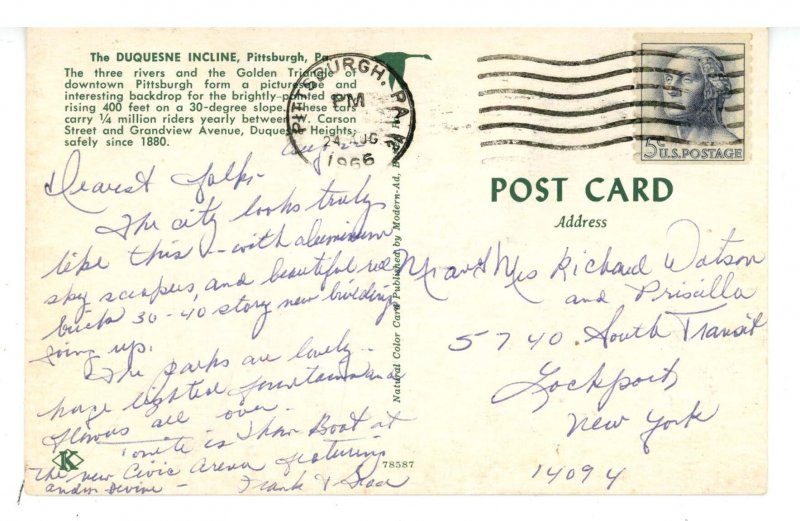 The DUQUESNE INCLINE, Pittsburgh, Pa.
The three rivers and the Golden Triangle of
downtown Pittsburgh form a picturesque and
interesting backdrop for the brightly-painted cars
rising 400 feet on a 30-degree slope. These cars
carry ¼ million riders yearly between W. Carson
Street and Grandview Avenue, Duquesne Heights,
safely since 1880.
PITTSBURGH, PA.
PM
24 AUG
1966
5c U.S. POSTAGE
POST CARD
Address
Dearest folks-
The city looks truly
like this -- with aluminum
sky scrapers, and beautiful red
brick 30-40 story new buildings
going up.
The parks are lovely -
huge lighted fountains and
flowers all over -
Tonite is Show Boat at
the new Civic Arena featuring
Andy Devine -
Frank &
Mr and Mrs Richard Watson
and Priscilla
5740 South Transit
Lockport
New York
14094
Natural Color Card Published by Modern-Ad,
K
78587